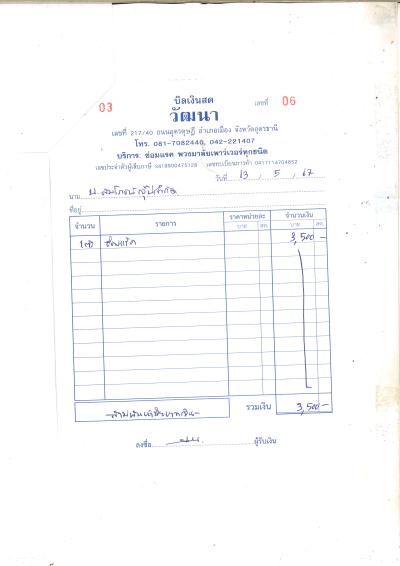 03
บิลเงินสด
เลขที่ 06
วัฒนา
เลขที่ 217/40 ถนนอุดรดุษฎี อำเภอเมือง จังหวัดอุดรธานี
โทร. 081-7082440, 042-221407
บริการ: ซ่อมแรค พวงมาลัยเพาเวอร์ทุกชนิด
เลขประจำตัวผู้เสียภาษี 3419900475128 เลขทะเบียนการค้า 0417114704852
วันที่ 13 / 5 / 67
นาม
ที่อยู่
จำนวน รายการ ราคาหน่วยละ จำนวนเงิน
บาท สต. บาท สต.
ซ่อมแร็ค 3,500 -
-สามพันห้าร้อยบาทถ้วน- รวมเงิน 3,500 -
ลงชื่อ ผู้รับเงิน